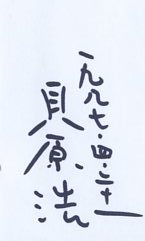 一九九七・四・二十一
貝原浩